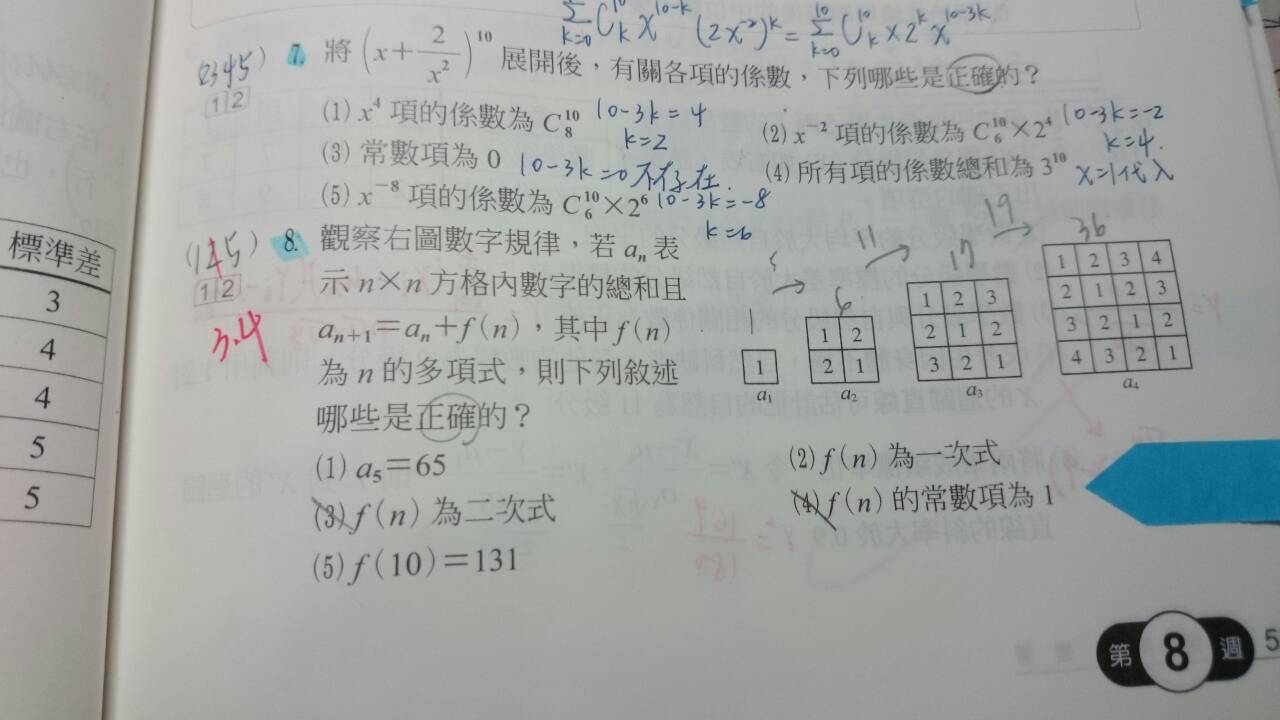 ∑(k=0→10) C¹⁰ₖ x¹⁰⁻ᵏ (2x⁻²)ᵏ = ∑(k=0→10) C¹⁰ₖ × 2ᵏ x¹⁰⁻³ᵏ
(2345) 7. 將 (x+2/x²)¹⁰ 展開後，有關各項的係數，下列哪些是正確的？
1 2
(1) x⁴ 項的係數為 C¹⁰₈ 10-3k=4 k=2
(2) x⁻² 項的係數為 C¹⁰₆×2⁴ 10-3k=-2 k=4.
(3) 常數項為 0 10-3k=0 不存在.
(4) 所有項的係數總和為 3¹⁰ x=1代入
(5) x⁻⁸ 項的係數為 C¹⁰₆×2⁶ 10-3k=-8 k=6
8. 觀察右圖數字規律，若 aₙ 表
1 2
示 n×n 方格內數字的總和且
3.4
aₙ₊₁=aₙ+f(n)，其中 f(n)
為 n 的多項式，則下列敘述
哪些是正確的？
5 11 19
1 6 17 36
1
a₁
1 2
2 1
a₂
1 2 3
2 1 2
3 2 1
a₃
1 2 3 4
2 1 2 3
3 2 1 2
4 3 2 1
a₄
(1) a₅=65
(2) f(n) 為一次式
(3) f(n) 為二次式
(4) f(n) 的常數項為 1
(5) f(10)=131
標準差
3
4
4
5
5
第 8 週 5